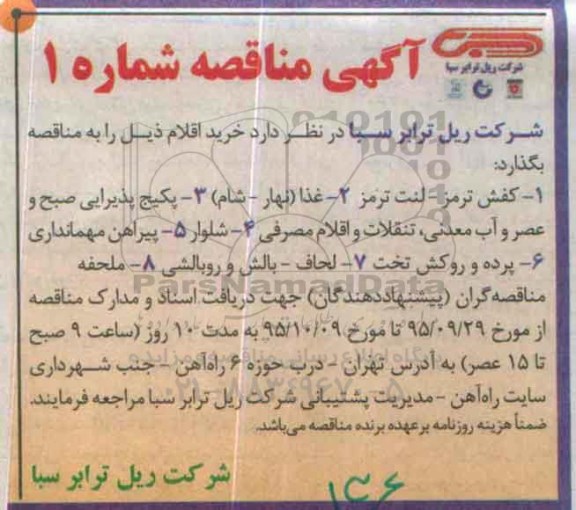 آگهی مناقصه شماره ۱
شرکت ریل ترابر سبا
شـرکت ریل ترابر سـبا در نظـر دارد خرید اقلام ذیـل را به مناقصه
بگذارد:
۱- کفش ترمز - لنت ترمز ۲- غذا (نهار - شام) ۳- پکیج پذیرایی صبح و
عصر و آب معدنی، تنقلات و اقلام مصرفی ۴- شلوار ۵- پیراهن مهمانداری
۶- پرده و روکش تخت ۷- لحاف - بالش و روبالشی ۸- ملحفه
مناقصه‌گران (پیشنهاددهندگان) جهت دریافت اسناد و مدارک مناقصه
از مورخ ۹۵/۰۹/۲۹ تا مورخ ۹۵/۱۰/۰۹ به مدت ۱۰ روز (ساعت ۹ صبح
تا ۱۵ عصر) به آدرس تهران - درب حوزه ۶ راه‌آهن - جنب شهرداری
سایت راه‌آهن - مدیریت پشتیبانی شرکت ریل ترابر سبا مراجعه فرمایند.
ضمناً هزینه روزنامه بر عهده برنده مناقصه می‌باشد.
شرکت ریل ترابر سبا
۱۳۶
ParsNamadData